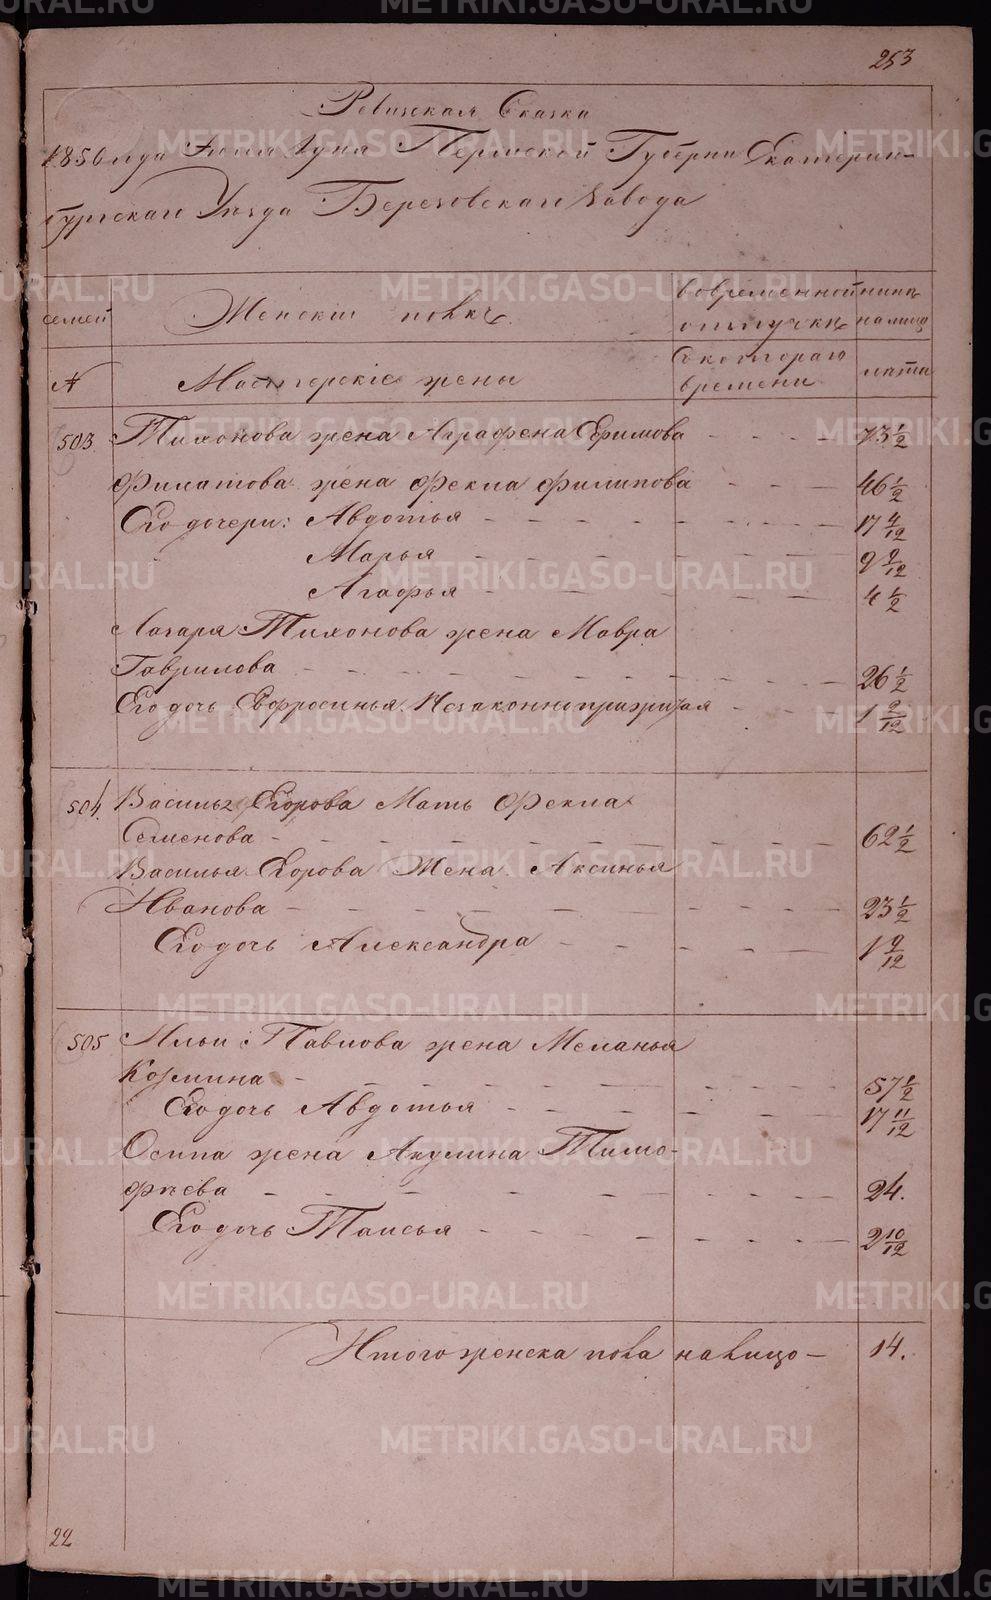 253
Ревизская Сказка
1850 года Июля дня Пермской Губерни Екатерин-
бургскаго Уезда Березовскаго Завода
семей
Женский полъ.
во временной
отлучкъ
ныне
на лицо
№
Мастерские жены
с котораго
времени
лета
503
Тихонова жена Аграфена Ефимова - - - - 73 1/2
Филатова жена Фекла Филипова - - - 46 1/2
Его дочери: Авдотья - - - - - - - - 17 4/12
Марья - - - - - - - - 9 9/12
Агафья - - - - - - - - 4 1/2
Лазаря Тихонова жена Мавра
Гаврилова - - - - - - - - - 26 1/2
Его дочь Ефросинья Незаконноприжитая - - - 1 9/12
504.
Василья Егорова Мать Фекла
Семенова - - - - - - - - - 62 1/2
Василья Егорова Жена Аксинья
Иванова - - - - - - - - - 23 1/2
Его дочь Александра - - - - - - 1 9/12
505
Ильи Павлова жена Меланья
Козмина - - - - - - - - - 57 1/2
Его дочь Авдотья - - - - - - - 17 11/12
Осипа жена Акулина Тимо-
фѣева - - - - - - - - - 24.
Его дочь Таисья - - - - - - - 2 10/12
Итого женска пола на лицо - 14.
22
METRIKI.GASO-URAL.RU